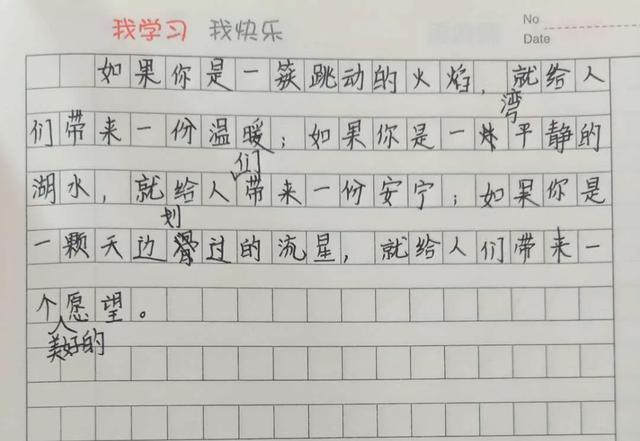 我学习 我快乐
No
Date
如果你是一簇跳动的火焰，就给人
湾
们带来一份温暖；如果你是一平静的
们
湖水，就给人带来一份安宁；如果你是
划
一颗天边过的流星，就给人们带来一
个愿望。
美好的